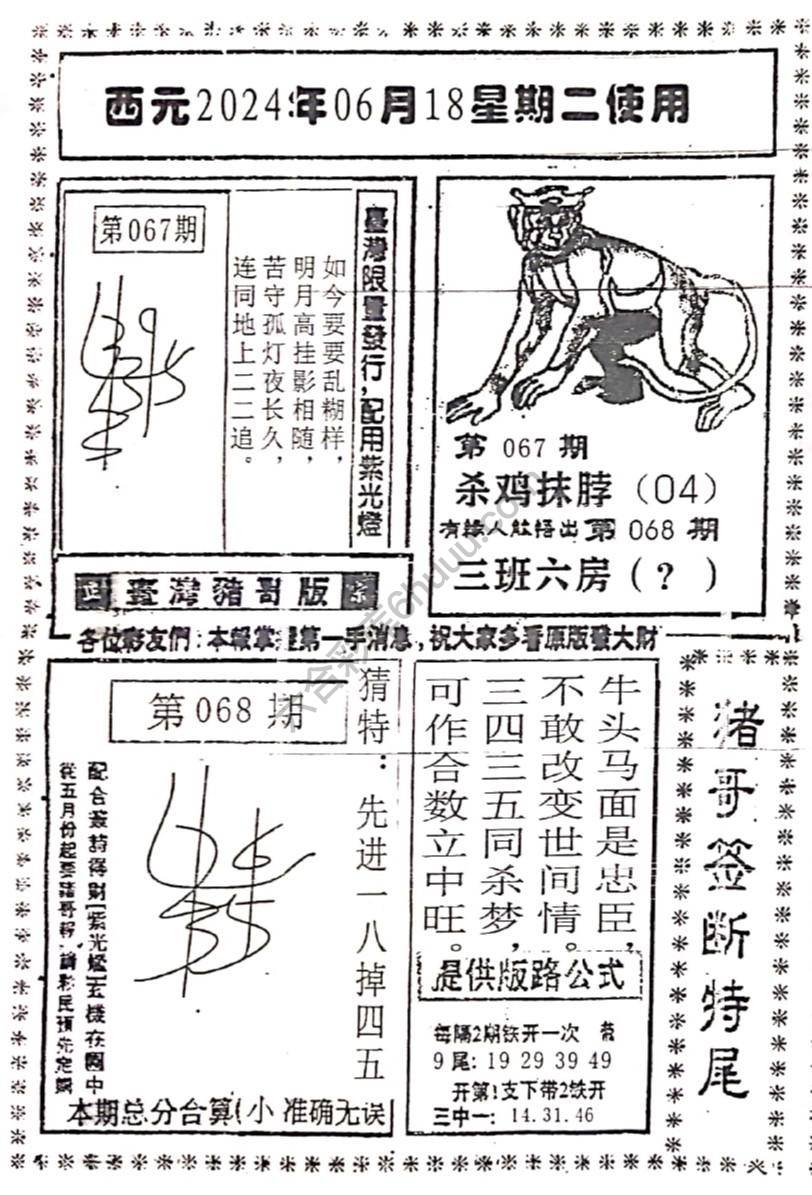 西元2024年06月18星期二使用
第067期
臺灣限量發行,配用紫光燈
如今要要乱糊样,
明月高挂影相随,
苦守孤灯夜长久,
连同地上二二追。
第 067 期
杀鸡抹脖（04）
有缘人能悟出第 068 期
三班六房（?）
正 臺灣豬哥版 宗
各位彩友們:本報掌握第一手消息,祝大家多看原版發大財
第 068 期
猜特:先进一八掉四五
從五月份起要豬哥報 請彩民預先定購
本期总分合算(小 准确无误
牛头马面是忠臣,
不敢改变世间情。
三四三五同杀梦,
可作合数立中旺。
提供版路公式
每隔2期铁开一次
9 尾: 19 29 39 49
开第1支下带2铁开
三中一: 14.31.46
猪哥签断特尾
六合彩库6huuu.com